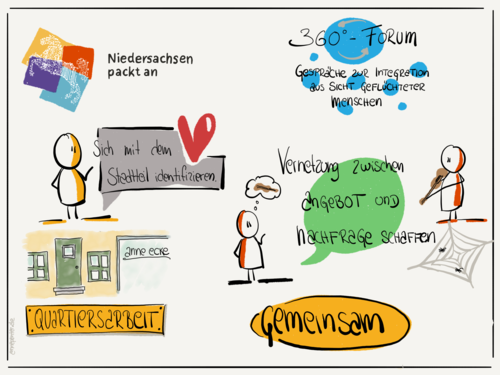 Niedersachsen
packt an
360°-FORUM
GESPRÄCHE ZUR INTEGRATION
AUS SICHT GEFLÜCHTETER
MENSCHEN
Sich mit dem
Stadtteil identifizieren.
VERNETZUNG ZWISCHEN
ANGEBOT UND
NACHFRAGE SCHAFFEN
anne ecke
QUARTIERSARBEIT
GEMEINSAM